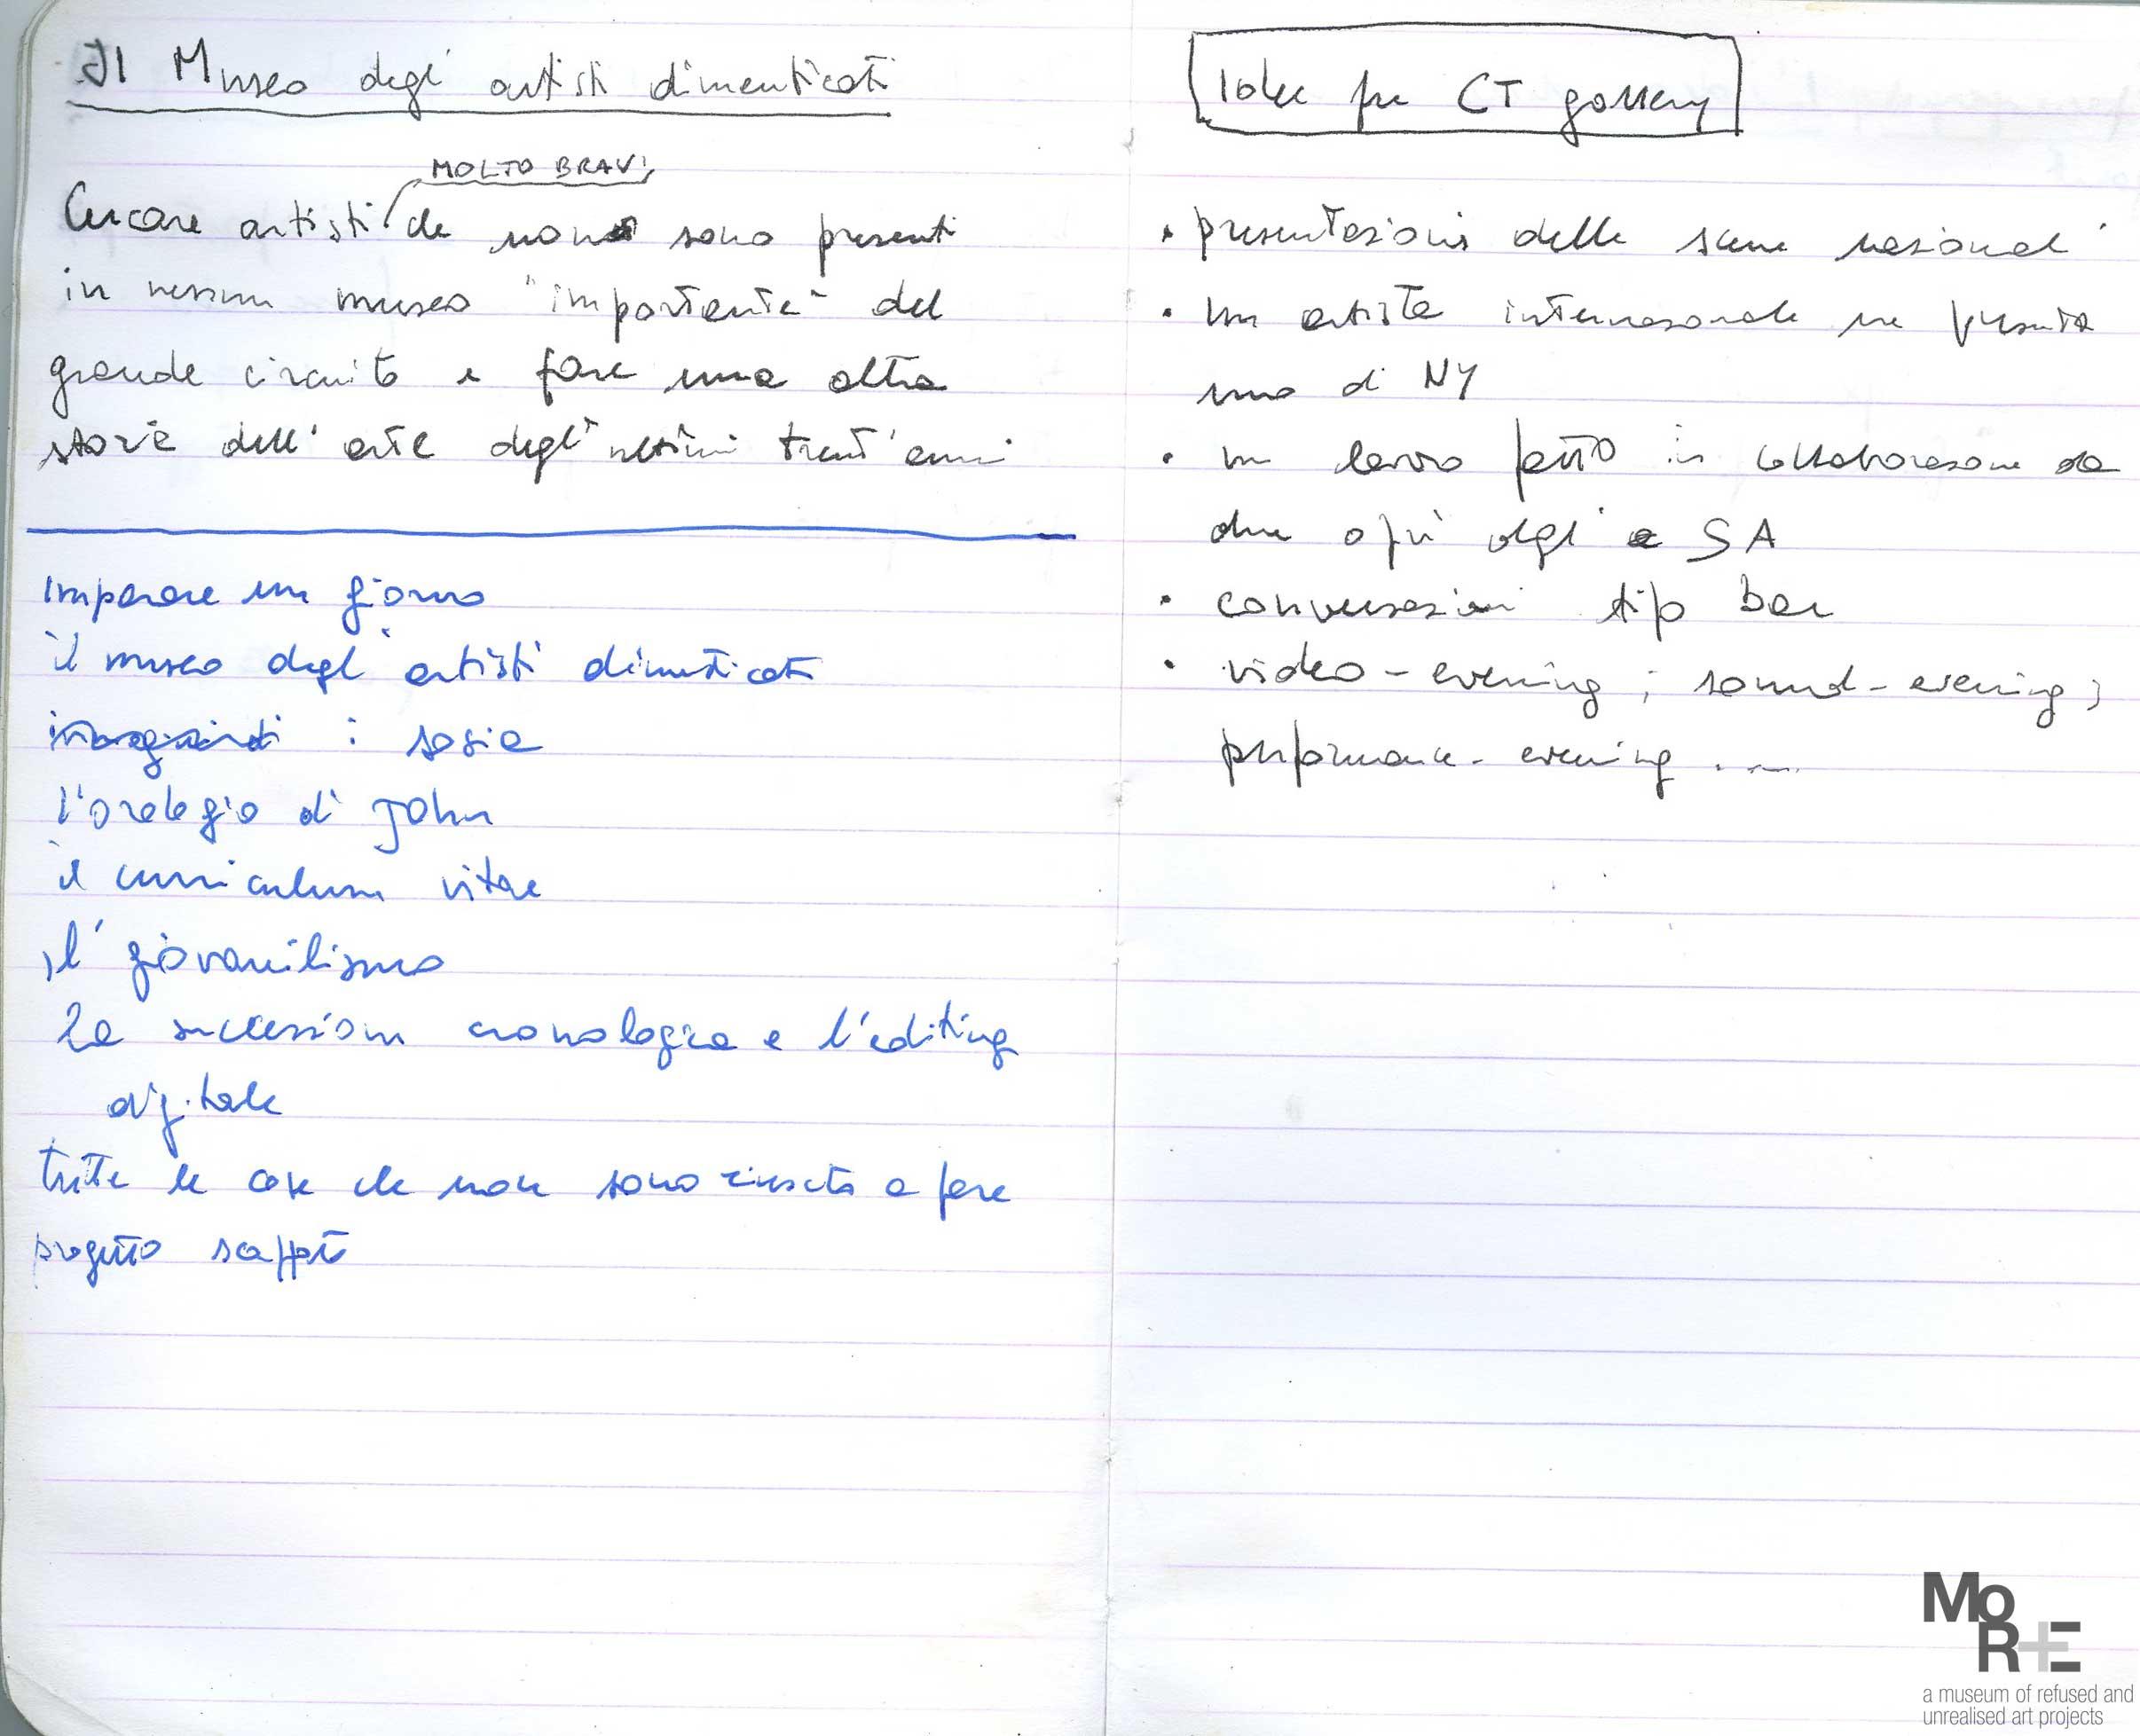 Il Museo degli artisti dimenticati
MOLTO BRAVI
Cercare artisti che non sono presenti
in nessun museo "importante" del
grande circuito e fare una altra
storia dell'arte degli ultimi trent'anni
Imparare un giorno
il museo degli artisti dimenticati
i sosia
l'orologio di John
il curriculum vitae
il giovanilismo
La successione cronologica e l'editing
digitale
tutte le cose che non sono riuscita a fare
progetto
Idee per CT gallery
• presentazioni delle scene nazionali
• un artista internazionale ne presenta
uno di NY
• un lavoro fatto in collaborazione da
due o più degli SA
• conversazioni tipo bar
• video-evening; sound-evening;
performance-evening .....
MoRE
a museum of refused and
unrealised art projects